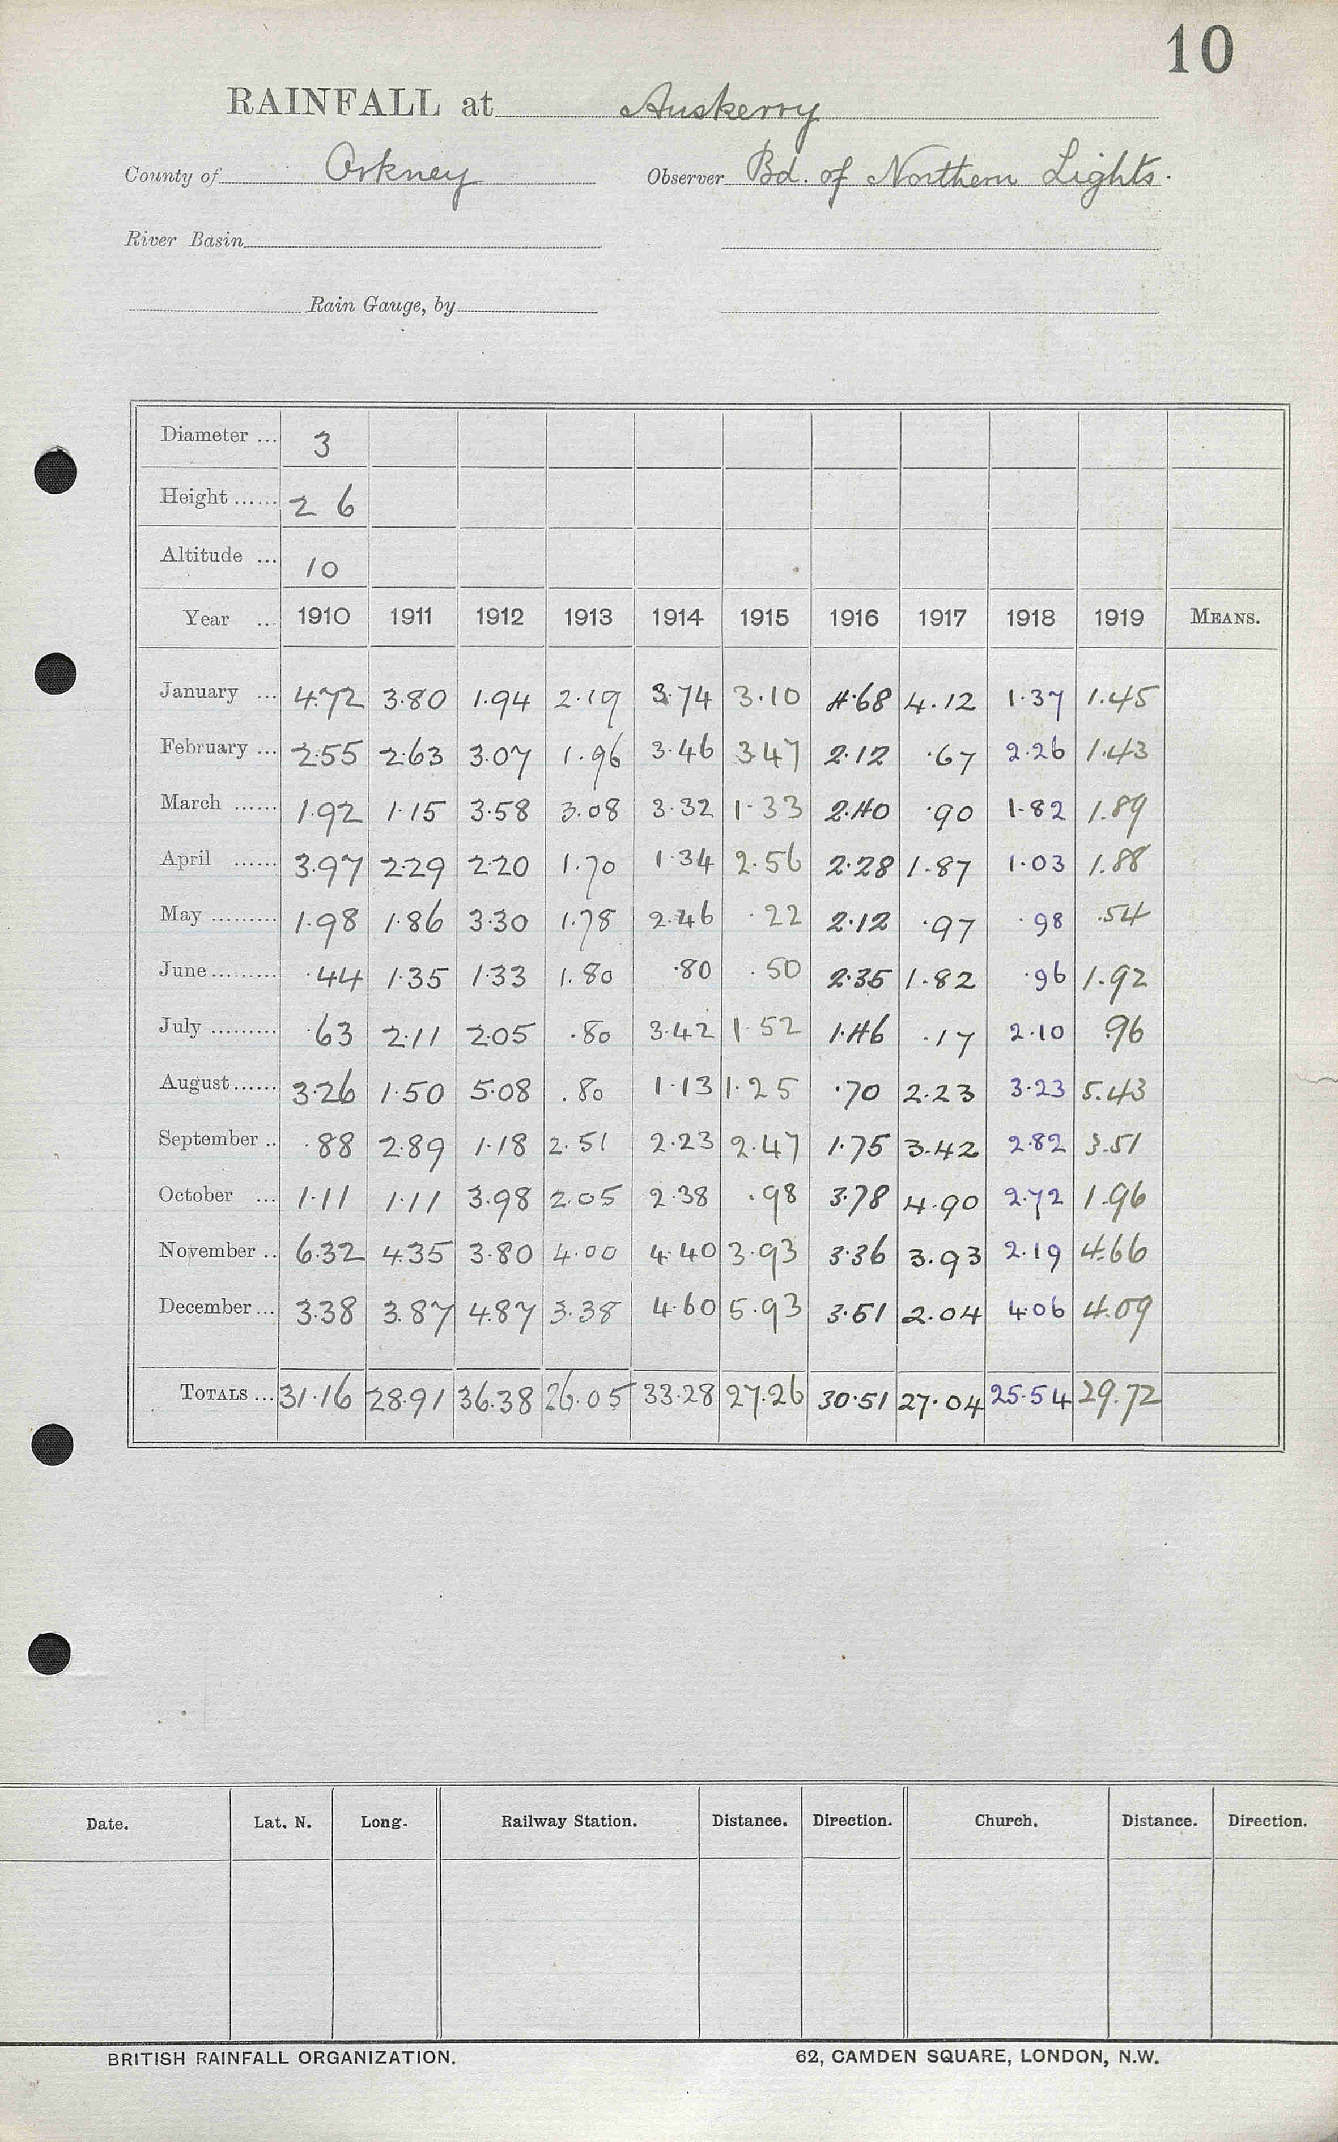 10
RAINFALL at Auskerry
County of Orkney Observer Bd. of Northern Lights.
River Basin
Rain Gauge, by
Diameter ... 3
Height ...... 2 6
Altitude ... 10
Year .. 1910 1911 1912 1913 1914 1915 1916 1917 1918 1919 MEANS.
January ... 4.72 3.80 1.94 2.19 3.74 3.10 4.68 4.12 1.37 1.45
February ... 2.55 2.63 3.07 1.96 3.46 3.47 2.12 .67 2.26 1.43
March ...... 1.92 1.15 3.58 3.08 3.32 1.33 2.40 .90 1.82 1.89
April ...... 3.97 2.29 2.20 1.70 1.34 2.56 2.28 1.87 1.03 1.88
May .......... 1.98 1.86 3.30 1.78 2.46 .22 2.12 .97 .98 .54
June.......... .44 1.35 1.33 1.80 .80 .50 2.35 1.82 .96 1.92
July .......... .63 2.11 2.05 .80 3.42 1.52 1.46 .17 2.10 .96
August...... 3.26 1.50 5.08 .80 1.13 1.25 .70 2.23 3.23 5.43
September .. .88 2.89 1.18 2.51 2.23 2.47 1.75 3.42 2.82 3.51
October ... 1.11 1.11 3.98 2.05 2.38 .98 3.78 4.90 2.72 1.96
November .. 6.32 4.35 3.80 4.00 4.40 3.93 3.36 3.93 2.19 4.66
December... 3.38 3.87 4.87 3.38 4.60 5.93 3.51 2.04 4.06 4.09
TOTALS ... 31.16 28.91 36.38 26.05 33.28 27.26 30.51 27.04 25.54 29.72
Date. Lat. N. Long. Railway Station. Distance. Direction. Church. Distance. Direction.
BRITISH RAINFALL ORGANIZATION. 62, CAMDEN SQUARE, LONDON, N.W.